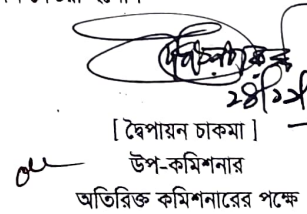 ২৪/১২/
[ দ্বৈপায়ন চাকমা ]
উপ-কমিশনার
অতিরিক্ত কমিশনারের পক্ষে